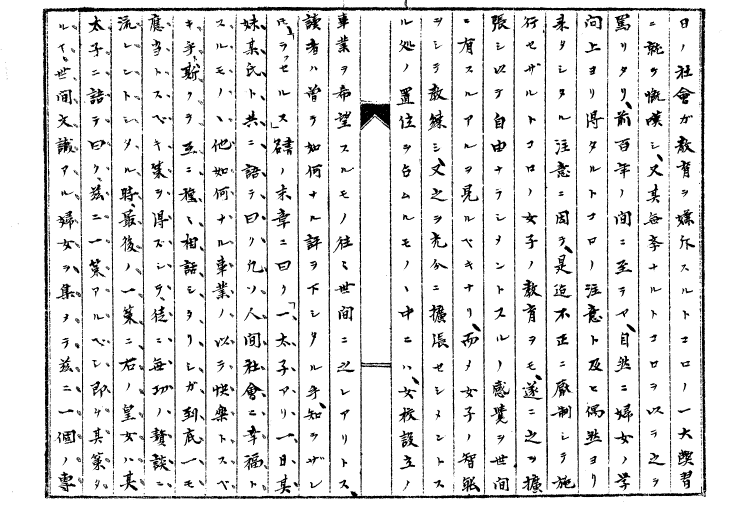 日ノ社會ガ教育ヲ嫌斥スルトコロノ一大獘習
ニ就テ慨嘆シ、又其無辜ナルトコロヲ以テ之ヲ
罵リタリ、前百年ノ間ニ至テヤ、自然ニ婦女ノ学
問上ヨリ得タルトコロノ注意ト及ヒ偶然ヨリ
来タシタル注意ニ因テ、是迄不正ニ壓制シテ施
行セザルトコロノ女子ノ教育ヲモ、遂ニ之ヲ擴
張シ以テ自由ナラシメントスルノ感覺ヲ世間
ニ有スルアルヲ見ルベキナリ、而メ女子ノ智能
ヲシテ教練シ、又之ヲ充分ニ擴張セシメントス
ル処ノ置位ヲ占ムルモノヽ中ニハ、女校設立ノ
事業ヲ希望スルモノ往々世間ニ之レアリトス、
讀者ハ曽テ如何ナル評ヲ下シタル乎知ラザレ
ロ「ラッセルス」ノ末章ニ曰ク「一太子アリ一日其
妹某氏ト共ニ語テ曰ク凡ソ人間社會ニ幸福ト
スルモノハ他如何ナル事業ノ以テ快樂トスベ
キ乎斯クテ互ニ種々相話シタリシガ到底一モ
應當トスベキ策ヲ得ズシテ徒ニ毎功ノ贅談ニ
流レントシタル時最後ノ一策ニ右ノ皇女ハ其
太子ニ語テ曰ク茲ニ一策アルベシ即ケ其策タ
ルヤ世間文識アル婦女ヲ集メテ茲ニ一個ノ専